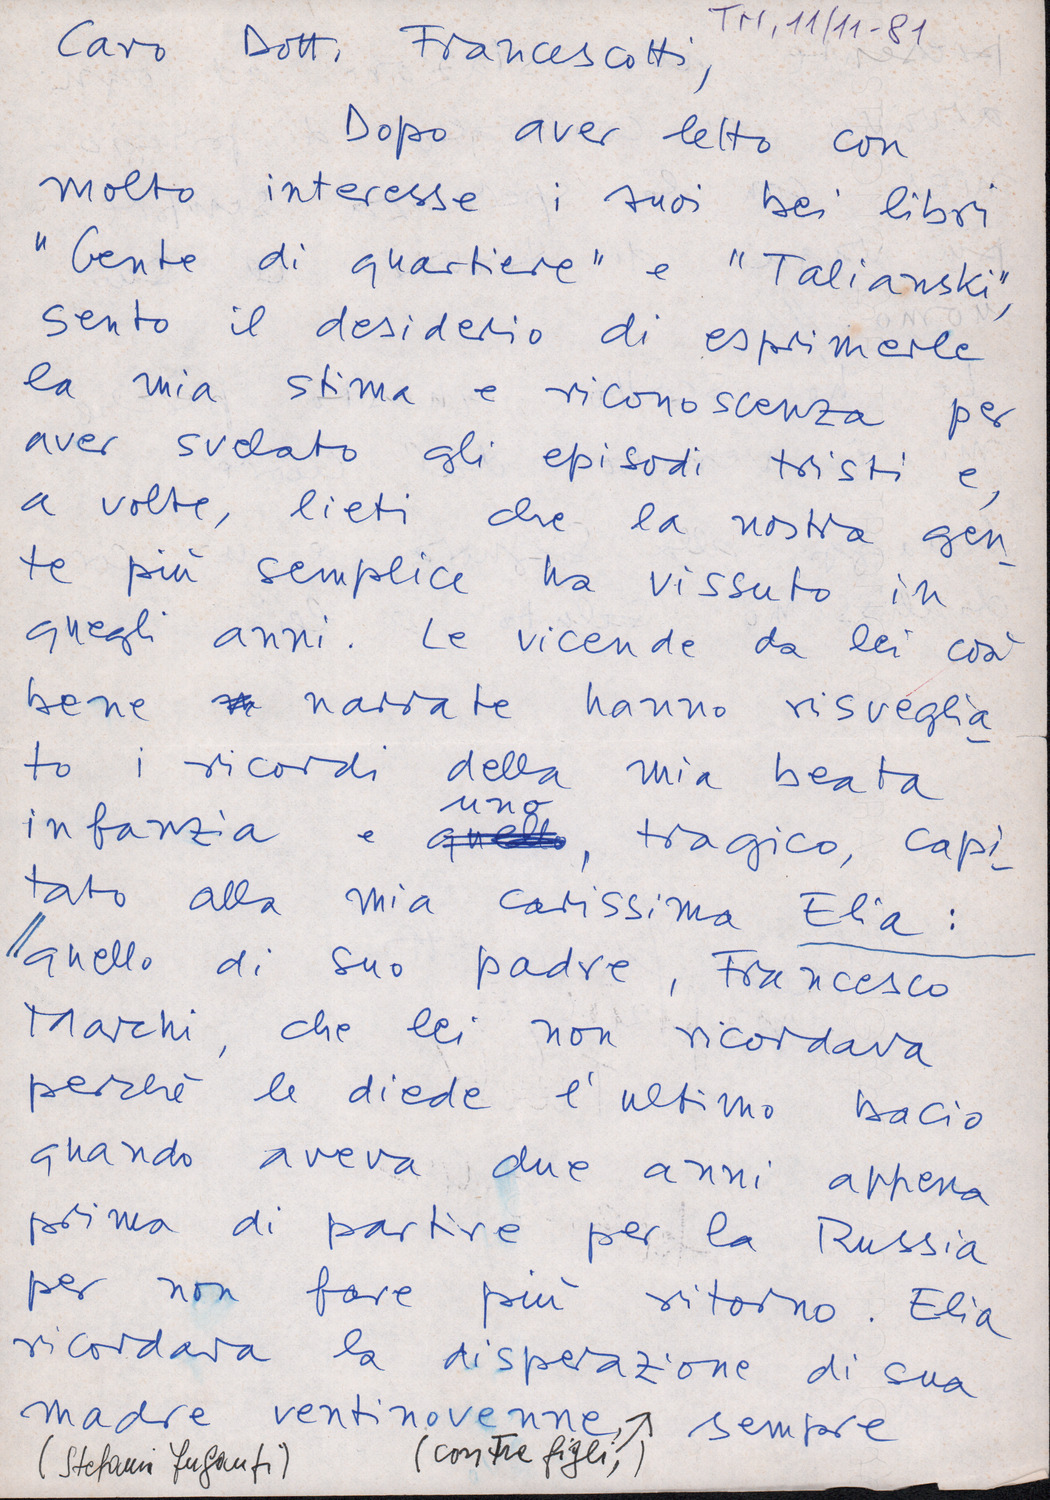 TN, 11/11-81
Caro Dott. Francescotti,
Dopo aver letto con
molto interesse i suoi bei libri
"Gente di quartiere" e "Talianski",
sento il desiderio di esprimerle
la mia stima e riconoscenza per
aver svelato gli episodi tristi e,
a volte, lieti che la nostra gen-
te più semplice ha vissuto in
quegli anni. Le vicende da lei così
bene narrate hanno risveglia-
to i ricordi della mia beata
uno
infanzia e quello, tragico, capi-
tato alla mia carissima Elia:
quello di suo padre, Francesco
Marchi, che lei non ricordava
perchè le diede l'ultimo bacio
quando aveva due anni appena
prima di partire per la Russia
per non fare più ritorno. Elia
ricordava la disperazione di sua
madre ventinovenne, sempre
(Stefani) (con tre figli,)